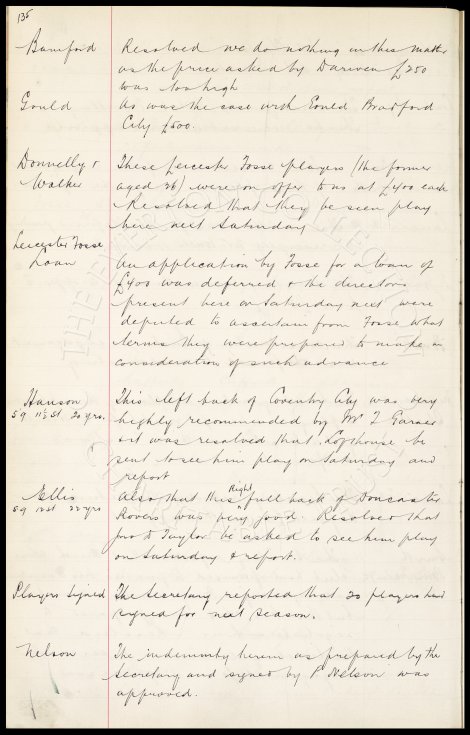 135
Bamford Resolved we do nothing in this matter
as the price asked by Darwen £250
was too high
Gould As was the case with Gould Bradford
City £500.
Donnelly & These Leicester Fosse players (the former
Walker aged 26) were on offer to us at £400 each
Resolved that they be seen play
here next Saturday
Leicester Fosse
Loan An application by Fosse for a loan of
£400 was deferred & the directors
present here on Saturday next were
deputed to ascertain from Fosse what
terms they were prepared to make in
consideration of such advance
Hanson This left back of Coventry City was very
5 9 11½ St 20 yrs. highly recommended by Mr
& it was resolved that Lofthouse be
sent to see him play on Saturday and
report
Ellis Also that this Right full back of Doncaster
5 9 12 St 22 yrs Rovers was very good. Resolved that
Taylor be asked to see him play
on Saturday & report.
Players Signed The Secretary reported that 20 players had
signed for next season.
Nelson The indemnity herein as prepared by the
Secretary and signed by P Nelson was
approved.